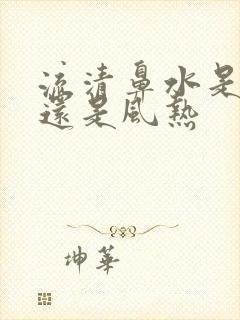 流清鼻水是
還是風熱
坤華